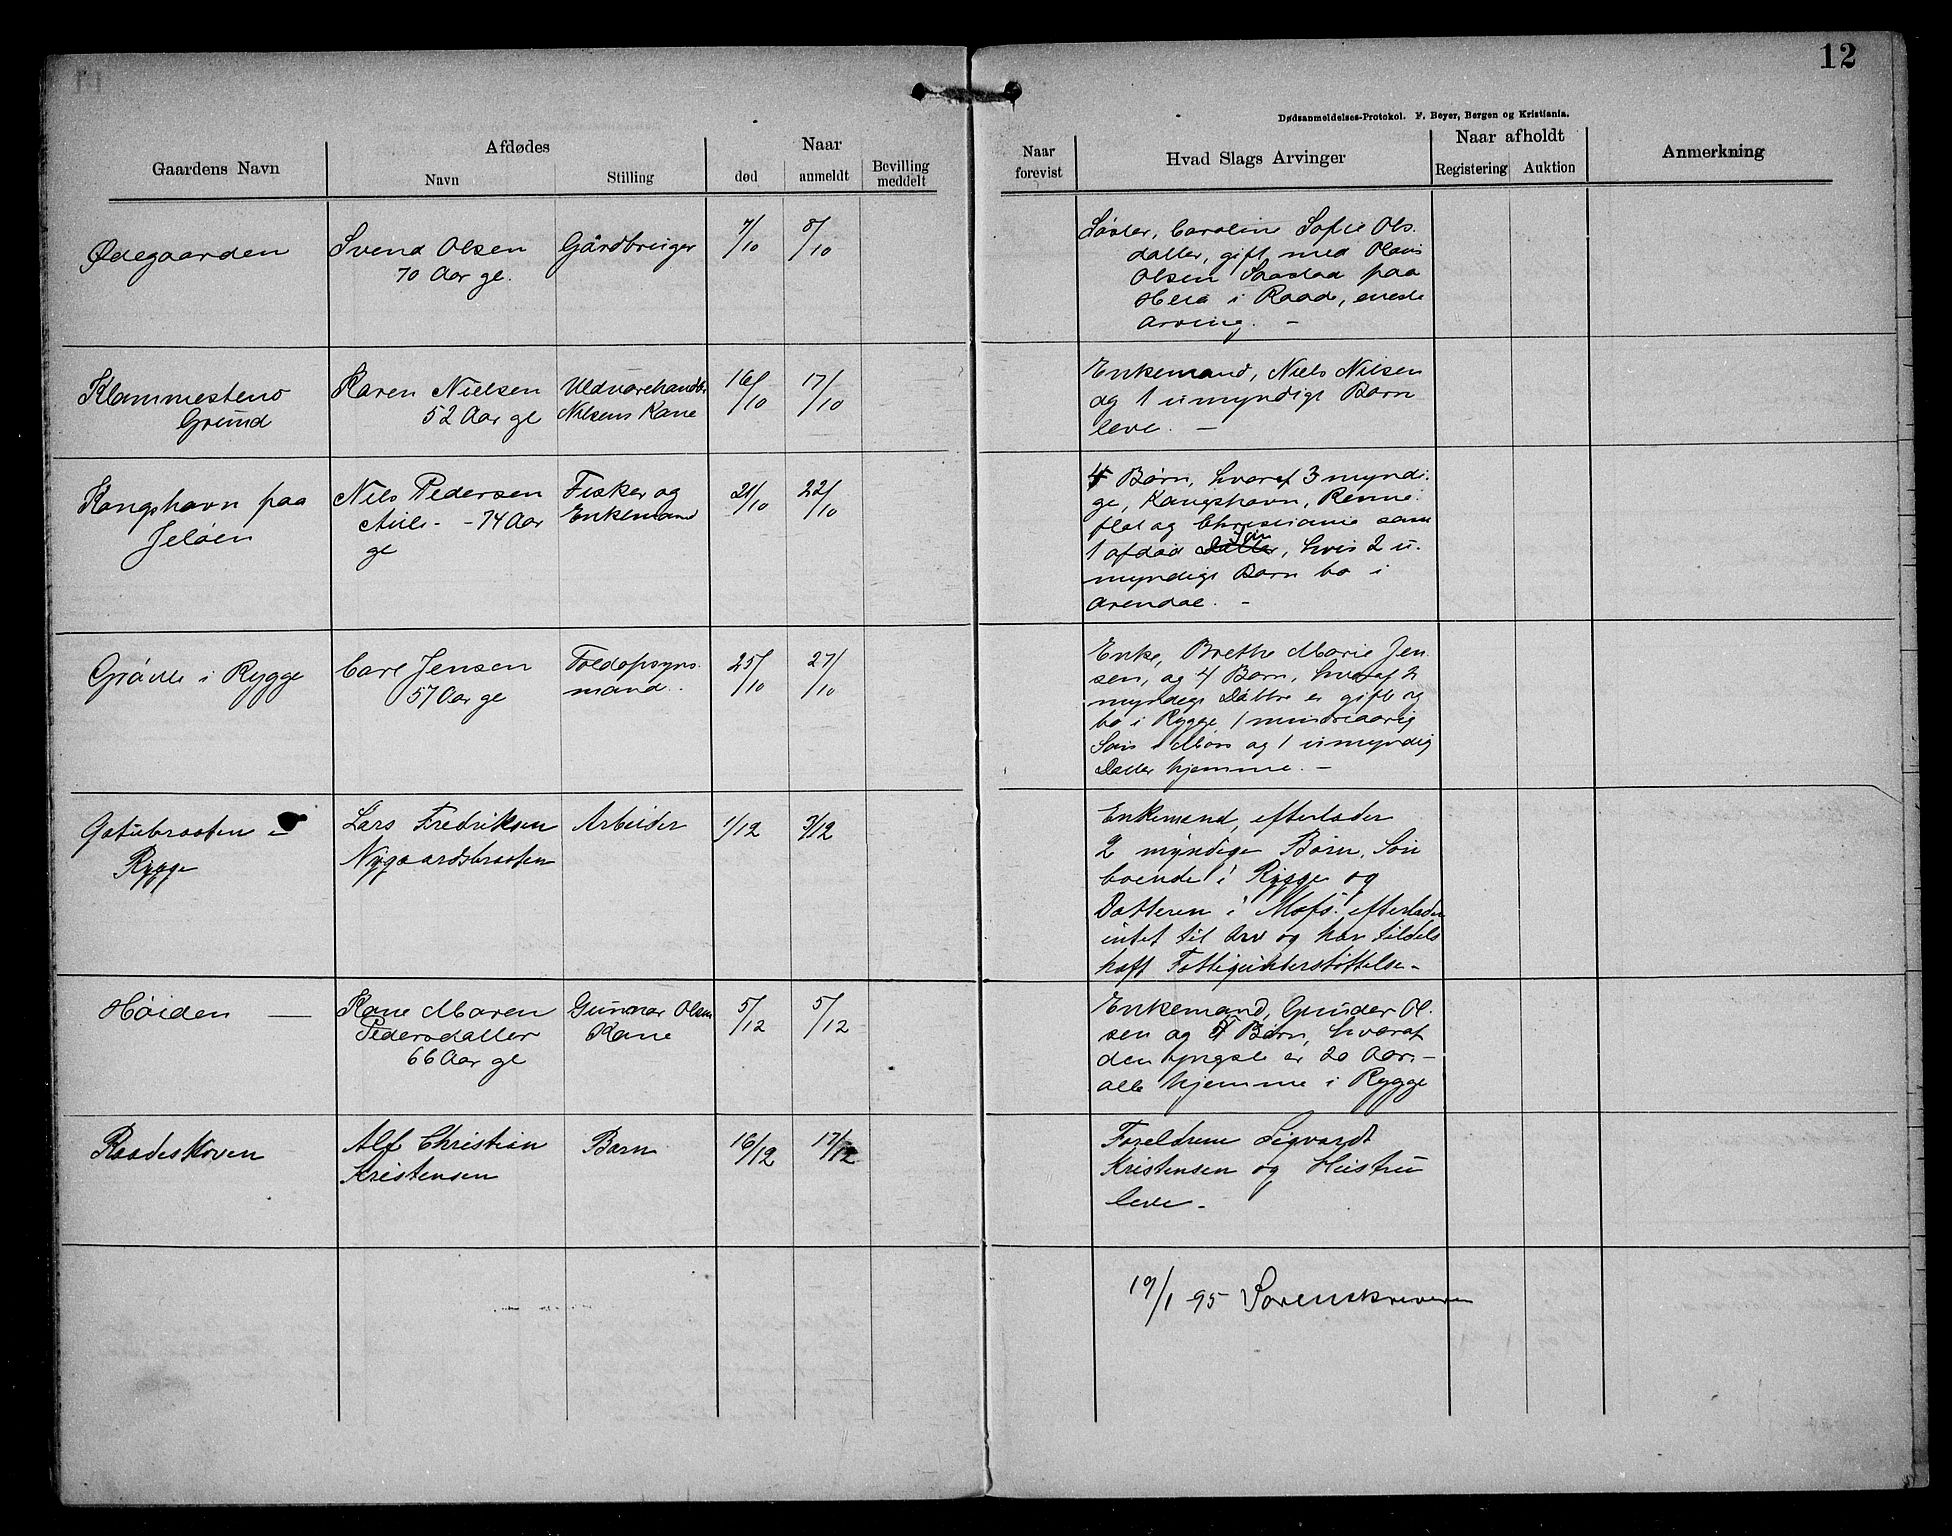 12
Dødsanmeldelses-Protokol. F. Beyer, Bergen og Kristiania.
Gaardens Navn
Afdødes
Navn
Stilling
Naar
død
anmeldt
Bevilling
meddelt
Naar
forevist
Hvad Slags Arvinger
Naar afholdt
Registering
Auktion
Anmerkning
Ødegaarden
Svend Olsen
70 Aar gl.
Gårdbruger
7/10
8/10
Søster, Carolin Sofie Ols-
datter, gift med Olaus
Olsen Saastad paa
i Raade, eneste
Arving. -
Klommestens
Grund
Karen Nielsen
52 Aar gl
Uldvarehandlr
Nilsens Kone
16/10
17/10
Enkemand, Niels Nilsen
og 1 umyndigt Barn
leve. -
Kongshavn paa
Jeløen
Nils Pedersen
- 74 Aar
gl
Fisker og
Enkemand
21/10
22/10
4 Børn, hvoraf 3 myndi-
ge, Kongshavn, Renne-
flot og Christiania samt
1 afdød Datter, hvis 2 u-
myndige Børn bo i
Arendal. -
i Rygge
Carl Jensen
57 Aar gl
Toldopsyns-
mand.
25/10
27/10
Enke, Brethe Marie Jen-
sen, og 4 Børn, hvoraf 2
myndige Døttre er gift og
bo i Rygge 1 mindreaarig
Søn i Moss og 1 umyndig
Datter hjemme. -
i
Rygge
Lars Fredriksen
Nygaardsbraaten
Arbeider
1/12
3/12
Enkemand, efterlader
2 myndige Børn, Søn
boende i Rygge og
Datteren i Moss. efterlader
intet til Arv og har tildels
haft Fattigunderstøttelse -
Høiden -
Kone Maren
Pedersdatter
66 Aar gl
Gunnar Olsens
Kone
5/12
5/12
Enkemand, Gunder Ol-
sen og Børn, hvoraf
den yngste er 20 Aar. -
alle hjemme i Rygge
Raadeskoven
Alf Christian
Kristensen
Barn
16/12
17/12
Foreldrene Sigvardt
Kristensen og Hustru
leve -
19/1 95 Sorenskriveren